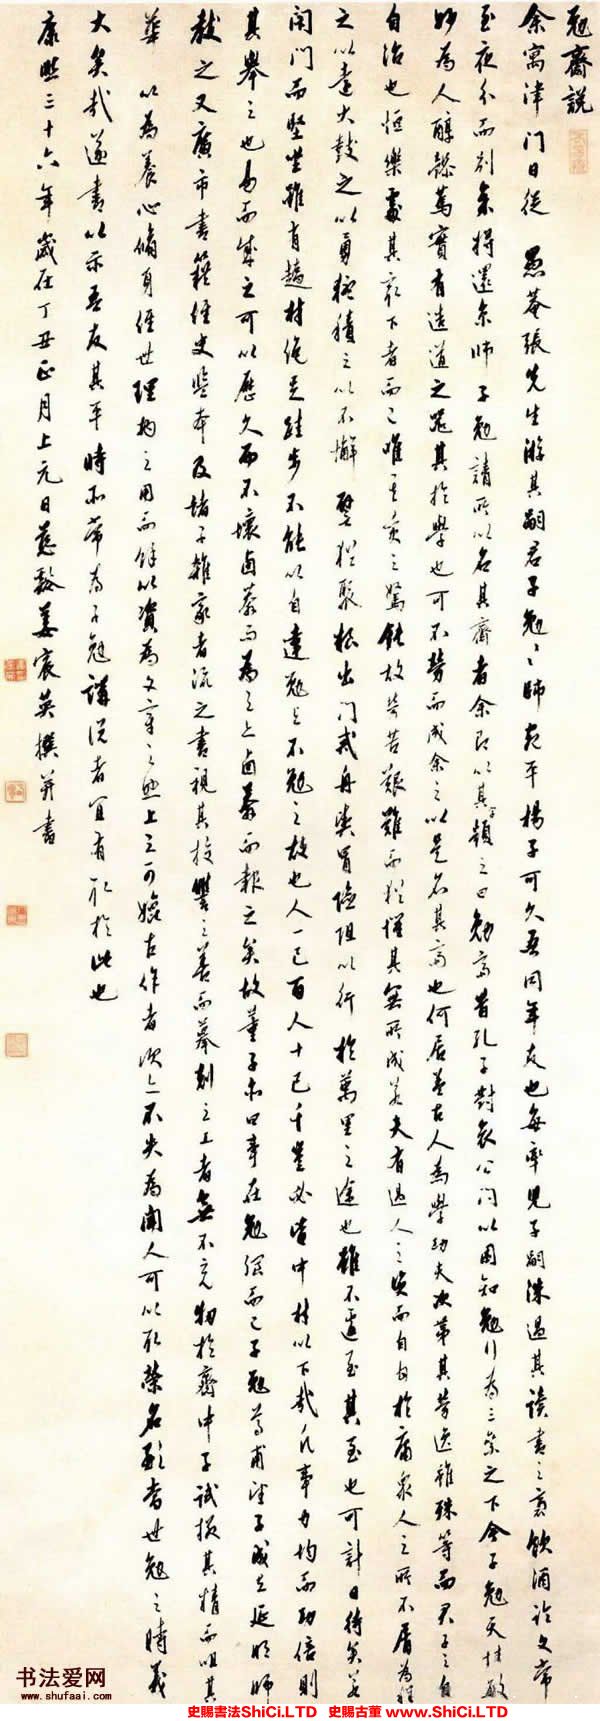 勉齋說
余寓津門日從 愚菴張先生游其嗣君子勉子勉師乾平楊子可久吾同年友也每率兒子嗣洙過其讀書之裏飲酒論文常
至夜分而別余將還京師子勉請所以名其齋者余即以其字顏之曰勉齋昔孔子對哀公問以困知勉行為三等之下今子勉天性敏
妙為人醇謹篤實有造道之器其於學也可不勞而成余之以是名其齋也何居蓋古人為學功夫次第其勞逸雖殊等而君子之自
自治也恒樂處其最下者而已唯其質之駑鈍故辛苦艱難而猶懼其無所成若夫有過人之質而自白於庸衆人之所不屑為程
之以遠大鼓之以勇猛積之以不懈 譬猶聚糧出門戒舟楫冒險阻以行於萬里之途也雖不遽至其至也可計日待矣若
閉門而堅坐雖有趫材絕足跬步不能以自達勉與不勉之故也人一己百人十己千豈必皆中材以下哉凡事力均而功倍則
其舉之也易而成之可以歷久而不壞鹵莽而為之亦鹵莽而報之矣故董子亦曰事在勉强而已子勉尊甫望子成立延明師
教之又廣市書籍經史監本及諸子雜家者流之書視其校讐之善而摹刻之工者無不充牣於齋中子試掇其精而咀其
華 以為養心脩身經世理物之用而餘以資為文章之興上之可媲古作者次之不失為聞人可以取榮名顯當世勉之時義
大矣哉遂書以示吾友其平時所常為子勉講說者宜有取於此也
康熙三十六年歲在丁丑正月上元日慈谿姜宸英撰并書
书法爱网
www.shufaai.com
史賜書法ShiCi.LTD 史賜古董www.ShiCi.LTD